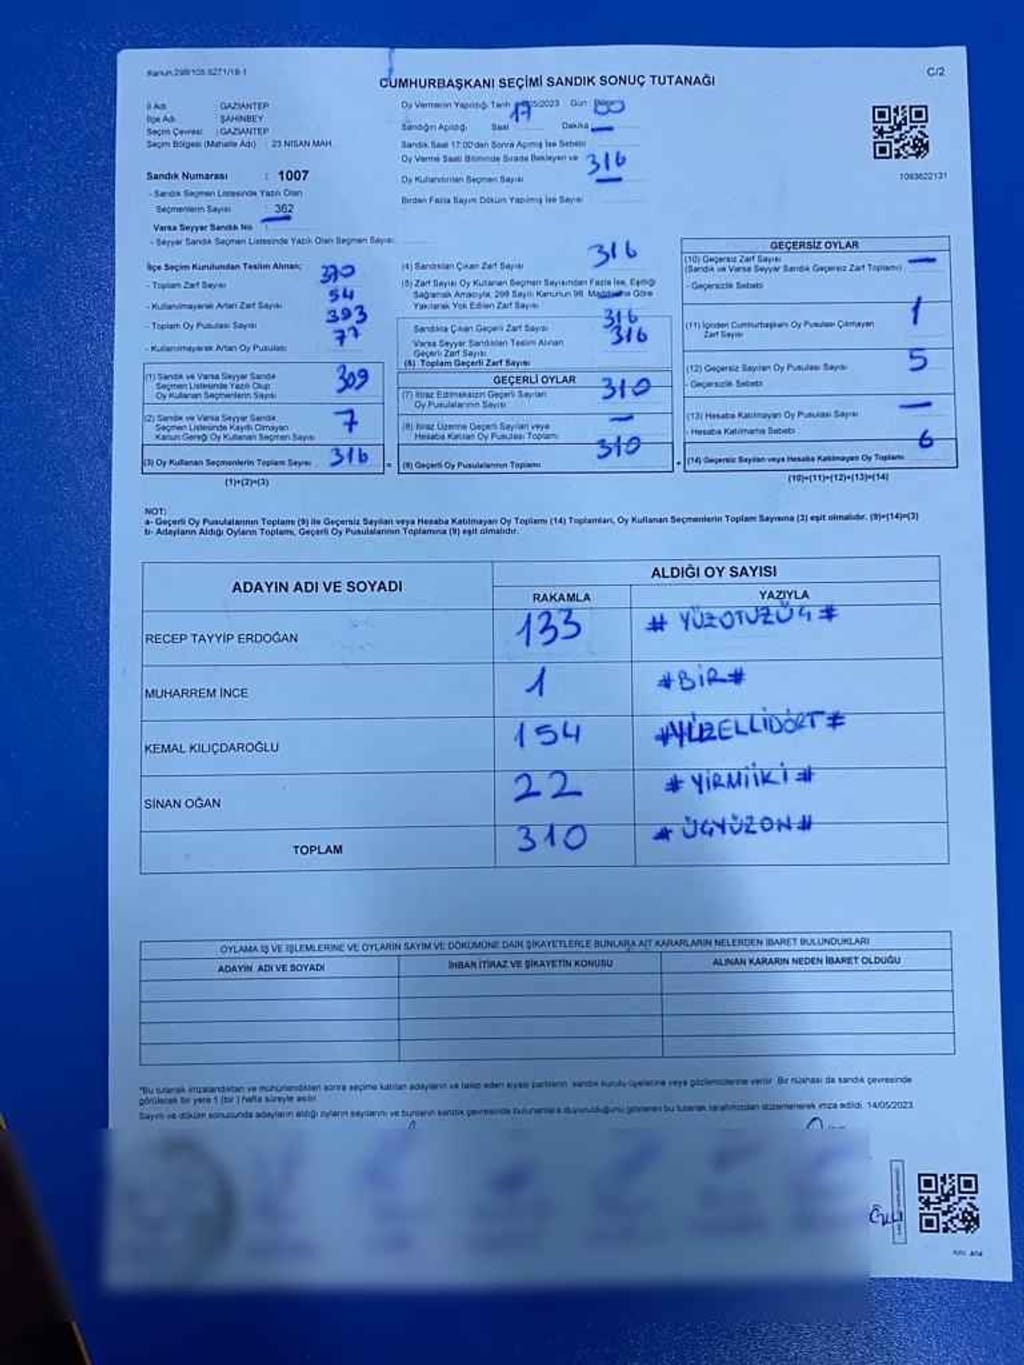 Kanun:298/105.6271/18-1
C/2
CUMHURBAŞKANI SEÇİMİ SANDIK SONUÇ TUTANAĞI
İl Adı : GAZİANTEP
İlçe Adı : ŞAHİNBEY
Seçim Çevresi : GAZİANTEP
Seçim Bölgesi (Mahalle Adı) : 23 NİSAN MAH.
Sandık Numarası : 1007
- Sandık Seçmen Listesinde Yazılı Olan
Seçmenlerin Sayısı : 362
Varsa Seyyar Sandık No
- Seyyar Sandık Seçmen Listesinde Yazılı Olan Seçmen Sayısı:
Oy Vermenin Yapıldığı Tarih /2023 Gün
Sandığın Açıldığı Saat 17 Dakika 00
Sandık Saat 17:00'den Sonra Açılmış İse Sebebi
Oy Verme Saati Bitiminde Sırada Bekleyen ve
Oy Kullandırılan Seçmen Sayısı 316
Birden Fazla Sayım Döküm Yapılmış İse Sayısı
1093622131
İlçe Seçim Kurulundan Teslim Alınan;
- Toplam Zarf Sayısı 370
- Kullanılmayarak Artan Zarf Sayısı 54
- Toplam Oy Pusulası Sayısı 393
- Kullanılmayarak Artan Oy Pusulası 77
(1) Sandık ve Varsa Seyyar Sandık
Seçmen Listesinde Yazılı Olup
Oy Kullanan Seçmenlerin Sayısı 309
(2) Sandık ve Varsa Seyyar Sandık
Seçmen Listesinde Kayıtlı Olmayan
Kanun Gereği Oy Kullanan Seçmen Sayısı 7
(3) Oy Kullanan Seçmenlerin Toplam Sayısı 316
(1)+(2)=(3)
=
(4) Sandıktan Çıkan Zarf Sayısı 316
(5) Zarf Sayısı Oy Kullanan Seçmen Sayısından Fazla İse, Eşitliği
Sağlamak Amacıyla, 298 Sayılı Kanunun 98. Maddesine Göre
Yakılarak Yok Edilen Zarf Sayısı
Sandıkta Çıkan Geçerli Zarf Sayısı 316
Varsa Seyyar Sandıktan Teslim Alınan
Geçerli Zarf Sayısı 316
(6) Toplam Geçerli Zarf Sayısı
GEÇERLİ OYLAR
(7) İtiraz Edilmeksizin Geçerli Sayılan
Oy Pusulalarının Sayısı 310
(8) İtiraz Üzerine Geçerli Sayılan veya
Hesaba Katılan Oy Pusulası Toplamı —
(9) Geçerli Oy Pusulalarının Toplamı 310
+
GEÇERSİZ OYLAR
(10) Geçersiz Zarf Sayısı —
(Sandık ve Varsa Seyyar Sandık Geçersiz Zarf Toplamı)
- Geçersizlik Sebebi
(11) İçinden Cumhurbaşkanı Oy Pusulası Çıkmayan
Zarf Sayısı 1
(12) Geçersiz Sayılan Oy Pusulası Sayısı 5
- Geçersizlik Sebebi
(13) Hesaba Katılmayan Oy Pusulası Sayısı —
- Hesaba Katılmama Sebebi
(14) Geçersiz Sayılan veya Hesaba Katılmayan Oy Toplamı 6
(10)+(11)+(12)+(13)=(14)
NOT:
a- Geçerli Oy Pusulalarının Toplamı (9) ile Geçersiz Sayılan veya Hesaba Katılmayan Oy Toplamı (14) Toplamları, Oy Kullanan Seçmenlerin Toplam Sayısına (3) eşit olmalıdır. (9)+(14)=(3)
b- Adayların Aldığı Oyların Toplamı, Geçerli Oy Pusulalarının Toplamına (9) eşit olmalıdır.
ADAYIN ADI VE SOYADI
ALDIĞI OY SAYISI
RAKAMLA YAZIYLA
RECEP TAYYİP ERDOĞAN 133 # YÜZOTUZÜÇ #
MUHARREM İNCE 1 #BİR#
KEMAL KILIÇDAROĞLU 154 #YÜZELLİDÖRT#
SİNAN OĞAN 22 # YİRMİİKİ #
TOPLAM 310 # ÜÇYÜZON #
OYLAMA İŞ VE İŞLEMLERİNE VE OYLARIN SAYIM VE DÖKÜMÜNE DAİR ŞİKAYETLERLE BUNLARA AİT KARARLARIN NELERDEN İBARET BULUNDUKLARI
ADAYIN ADI VE SOYADI
İHBAR İTİRAZ VE ŞİKAYETİN KONUSU
ALINAN KARARIN NEDEN İBARET OLDUĞU
*Bu tutanak imzalandıktan ve mühürlendikten sonra seçime katılan adayların ve talep eden siyasi partilerin sandık kurulu üyelerine veya gözlemcilerine verilir. Bir nüshası da sandık çevresinde
görülecek bir yere 1 (bir) hafta süreyle asılır.
Sayım ve döküm sonucunda adayların aldığı oyların sayılarını ve bunların sandık çevresinde bulunanlara duyurulduğunu gösteren bu tutanak tarafımızdan düzenlenerek imza edildi. 14/05/2023